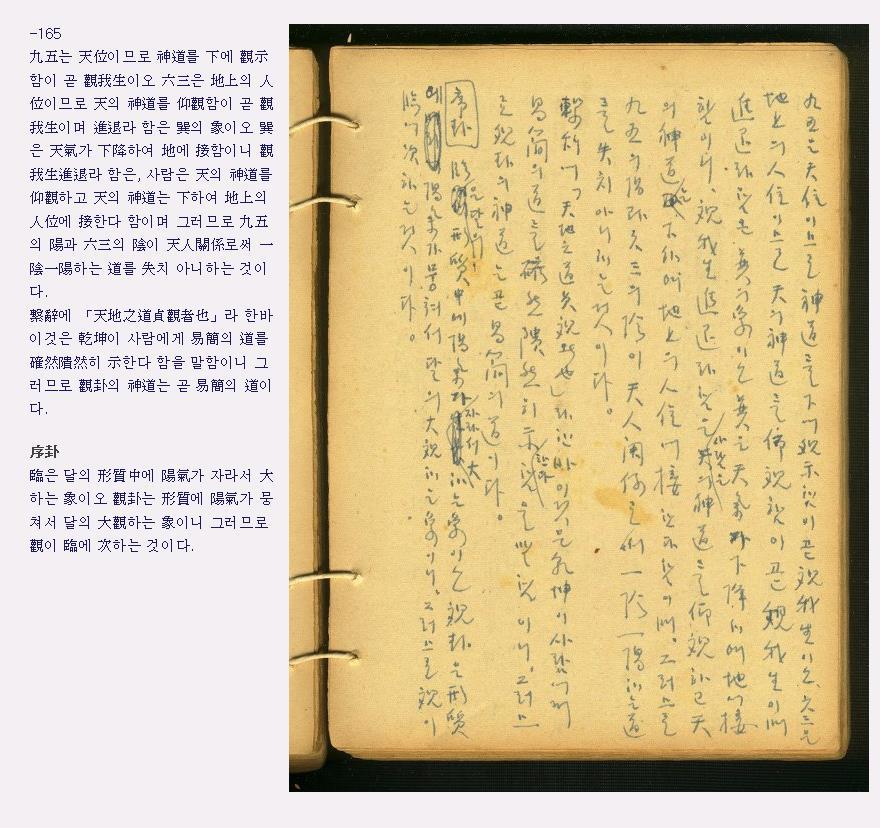 -165
九五는 天位이므로 神道를 下에 觀示
함이 곧 觀我生이오 六三은 地上의 人
位이므로 天의 神道를 仰觀함이 곧 觀
我生이며 進退라 함은 巽의 象이오 巽
은 天氣가 下降하여 地에 接함이니 觀
我生進退라 함은, 사람은 天의 神道를
仰觀하고 天의 神道는 下하여 地上의
人位에 接한다 함이며 그러므로 九五
의 陽과 六三의 陰이 天人關係로써 一
陰一陽하는 道를 失치 아니하는 것이
다.
繫辭에 「天地之道貞觀者也」라 한바
이것은 乾坤이 사람에게 易簡의 道를
確然隤然히 示한다 함을 말함이니 그
러므로 觀卦의 神道는 곧 易簡의 道이
다.
序卦
臨은 달의 形質中에 陽氣가 자라서 大
하는 象이오 觀卦는 形質에 陽氣가 뭉
쳐서 달의 大觀하는 象이니 그러므로
觀이 臨에 次하는 것이다.
九五는 天位이므로 神道를 下에 觀示함이 곧 觀我生이오, 六三은
地上의 人位이므로 天의 神道를 仰觀함이 곧 觀我生이며
進退라 함은 巽의 象이오 巽은 天氣가 下降하여 地에 接
함이니, 觀我生進退라 함은 사람은 天의 神道를 仰觀하고 天
의 神道는 下하여 地上의 人位에 接한다 함이며, 그러므로
九五의 陽과 六三의 陰이 天人関係로써 一陰一陽하는 道
를 失치 아니하는 것이다.
繫辞에「天地之道貞観者也」라 한바 이것은 乾坤이 사람에게
易簡의 道를 確然隤然히 示한다 함을 말함이니, 그러므
로 観卦의 神道는 곧 易簡의 道이다.
序卦 臨은 달의 形質中에 陽氣가 자라서 大하는 象이오 観卦는 形質
에 陽氣가 뭉쳐서 달의 大観하는 象이니, 그러므로 観이
臨에 次하는 것이다.